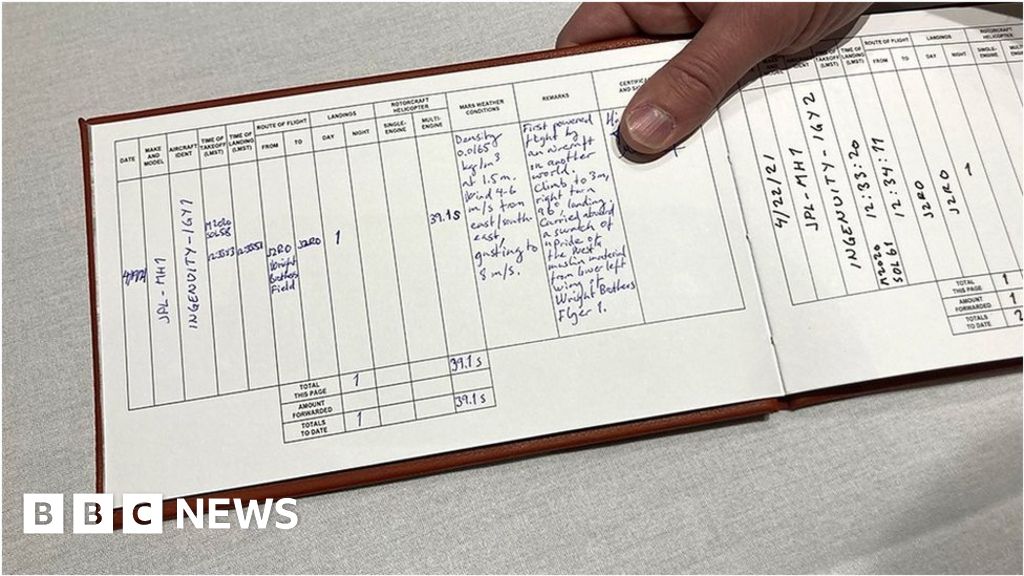 DATE
MAKE
AND
MODEL
AIRCRAFT
IDENT
TIME OF
TAKEOFF
(LMST)
TIME OF
LANDING
(LMST)
ROUTE OF FLIGHT
FROM
TO
LANDINGS
DAY
NIGHT
ROTORCRAFT
HELICOPTER
SINGLE-
ENGINE
MULTI-
ENGINE
MARS WEATHER
CONDITIONS
REMARKS
JPL-MH1
INGENUITY-IGY1
M2020
SOL58
J2RO
Wright
Brothers
Field
J2RO
1
39.1s
Density
0.0165
kg/m3
at 1.5m.
Wind 4-6
m/s from
east/south-
east,
gusting to
8 m/s.
First powered
flight by
an aircraft
on another
world.
Climb to 3m,
right turn
96°, landing.
Carried aboard
a swatch of
"Pride of
the West"
muslin material
from lower left
wing of
Wright Brothers
Flyer 1.
TOTAL
THIS PAGE
1
39.1s
AMOUNT
FORWARDED
TOTALS
TO DATE
1
39.1s
AND
MODEL
AIRCRAFT
IDENT
TIME OF
TAKEOFF
(LMST)
TIME OF
LANDING
(LMST)
ROUTE OF FLIGHT
FROM
TO
LANDINGS
DAY
NIGHT
ROTORCRAFT
HELICOPTER
SINGLE-
ENGINE
4/22/21
JPL-MH1
INGENUITY-IGY2
M2020
SOL61
12:33:20
12:34:11
J2RO
J2RO
1
TOTAL
THIS PAGE
1
AMOUNT
FORWARDED
1
TOTALS
TO DATE
2
BBC NEWS